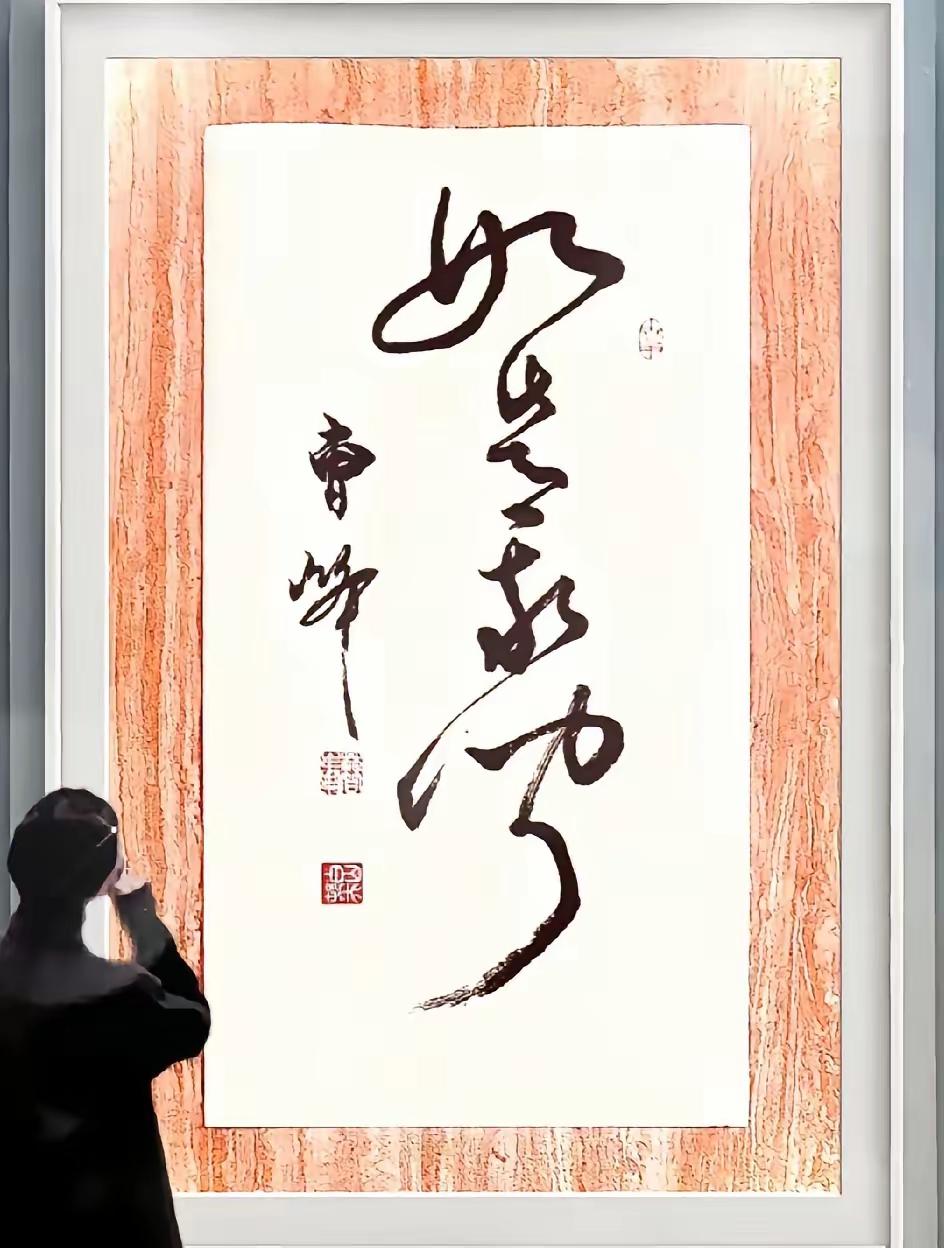 如是我闻
曹峰